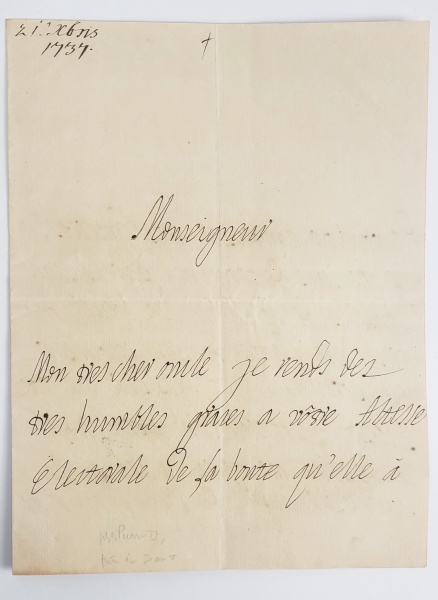 21.ª Xbris
1737.
Monseigneur
Mon tres cher oncle je rends des
tres humbles graces a vôtre Altesse
Electorale de sa bonte qu'elle à